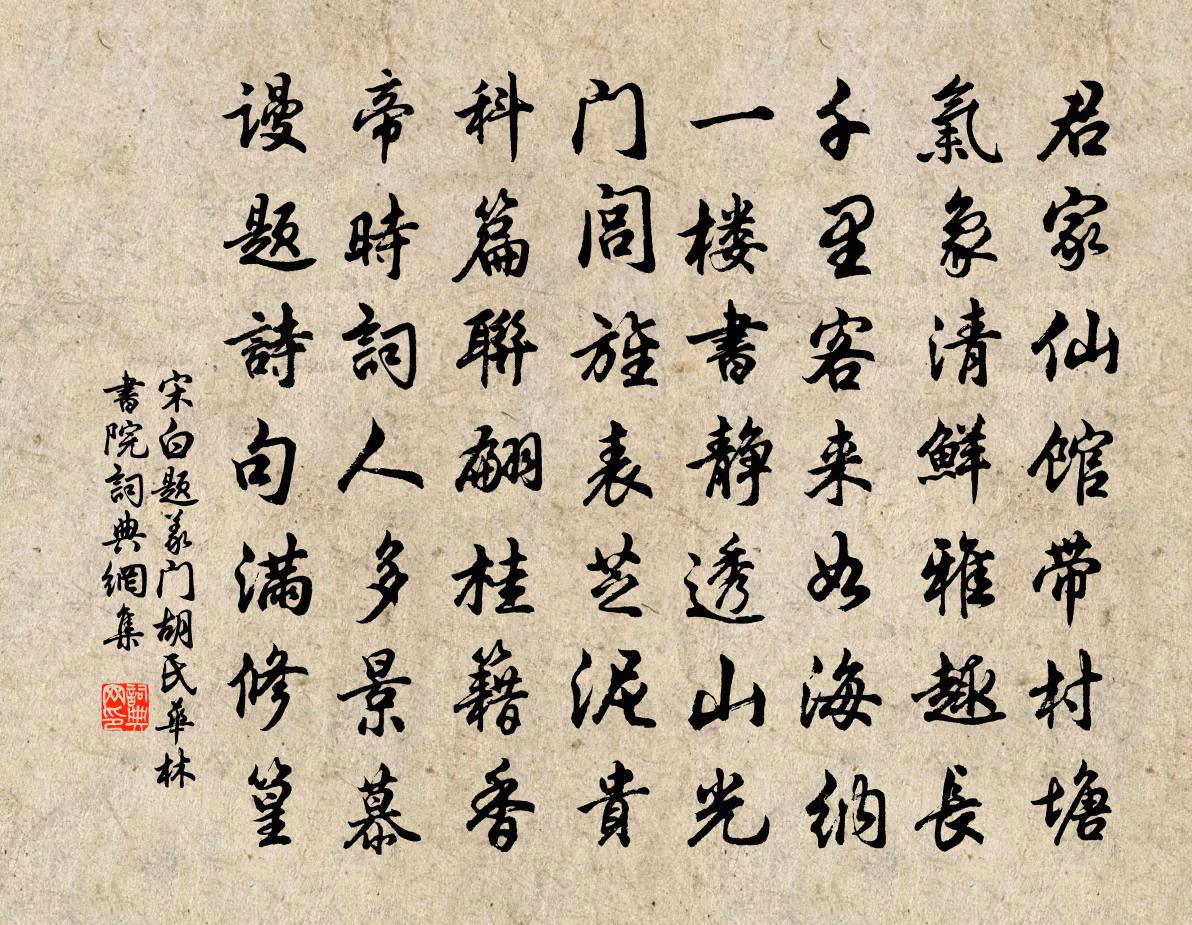 君家仙馆带村塘
氣象清鮮雅趣長
千里客来如海納
一楼書静透山光
门閭旌表芝泥貴
科篇聯翩桂籍香
帝時詞人多景慕
谩题詩句满修篁
宋白题義门胡氏華林
書院詞典網集
詞典网印